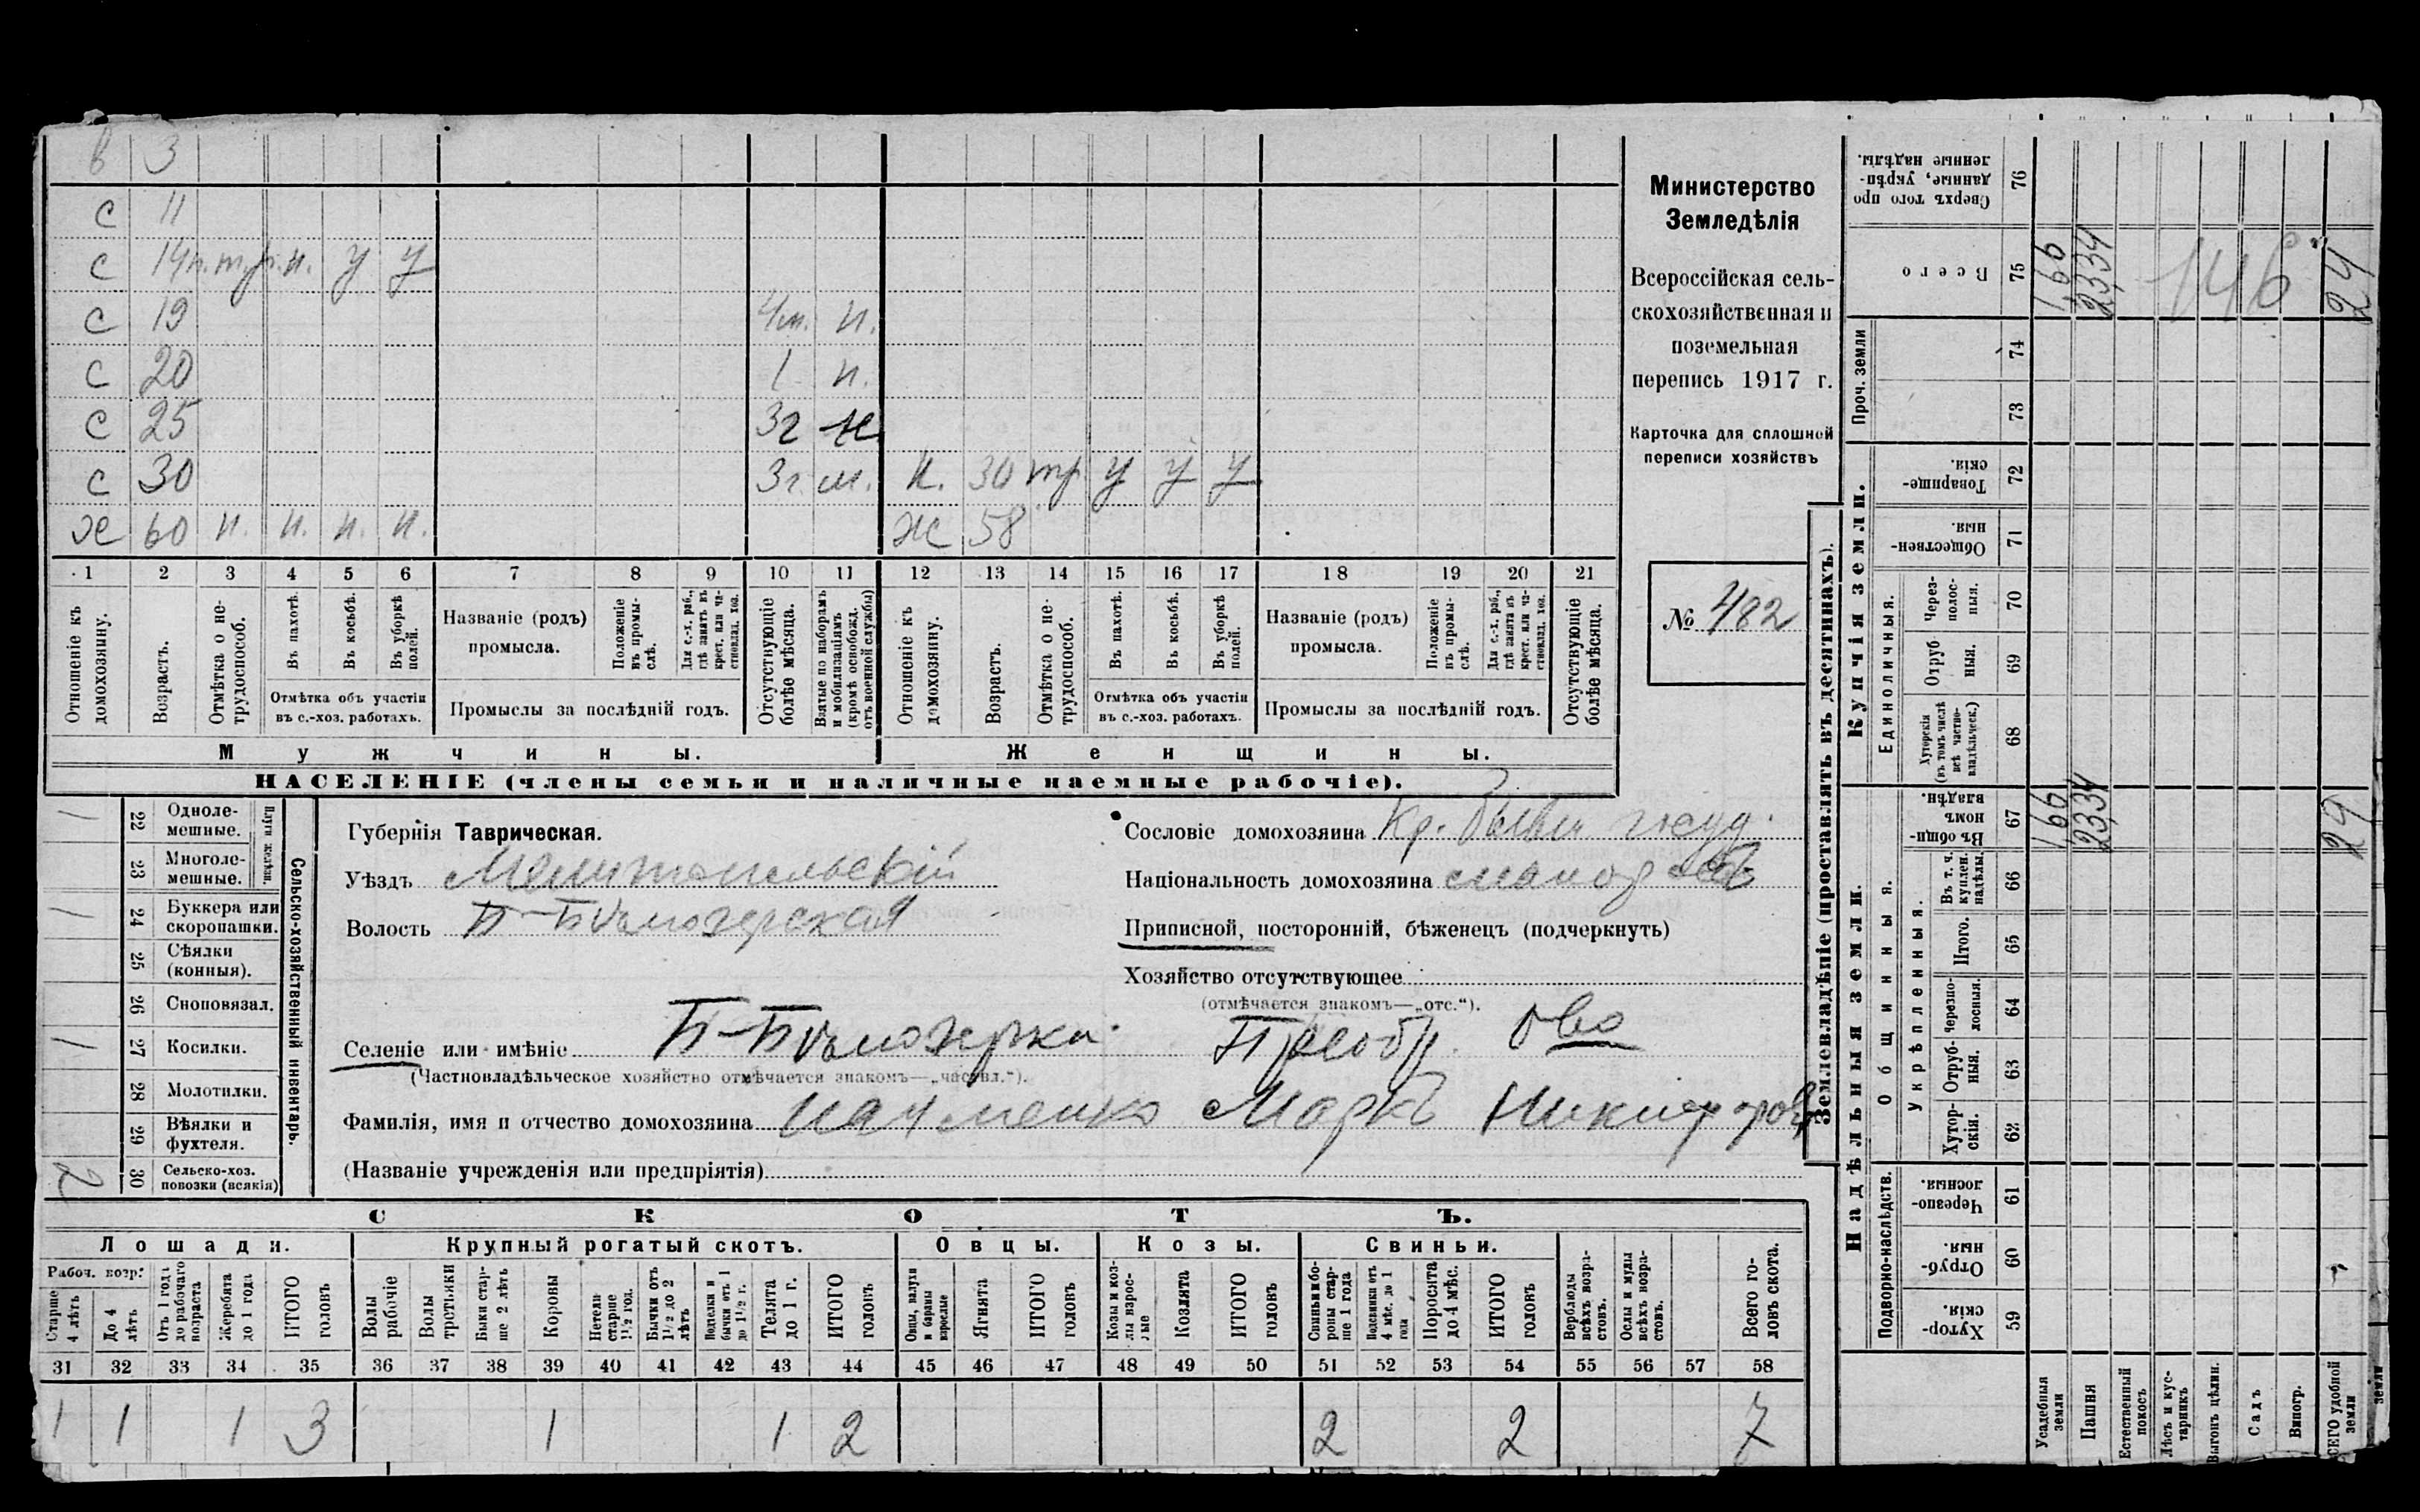 в 3
с 11
с 14 п. тр. п. у у
с 19 4 м. п.
с 20 1 п.
с 25 3 г
с 30 3 г. м. н. 30 тр у у у
х 60 п. п. п. п. ж 58
1 2 3 4 5 6 7 8 9 10 11 12 13 14 15 16 17 18 19 20 21
Отношеніе къ домохозяину.
Возрастъ.
Отмѣтка о нетрудоспособ.
Въ пахотѣ.
Въ косьбѣ.
Въ уборкѣ полей.
Отмѣтка объ участіи въ с.-хоз. работахъ.
Названіе (родъ) промысла.
Положеніе въ промыслѣ.
Для с.-х. раб., гдѣ занятъ въ крест. или частновлад. хоз.
Промыслы за послѣдній годъ.
Отсутствующіе болѣе мѣсяца.
Взятые по наборамъ и мобилизаціямъ (кромѣ освобожд. отъ военной службы)
Отношеніе къ домохозяину.
Возрастъ.
Отмѣтка о нетрудоспособ.
Въ пахотѣ.
Въ косьбѣ.
Въ уборкѣ полей.
Отмѣтка объ участіи въ с.-хоз. работахъ.
Названіе (родъ) промысла.
Положеніе въ промыслѣ.
Для с.-х. раб., гдѣ занятъ въ крест. или частновлад. хоз.
Промыслы за послѣдній годъ.
Отсутствующіе болѣе мѣсяца.
Мужчины. Женщины.
НАСЕЛЕНІЕ (члены семьи и наличные наемные рабочіе).
Министерство
Земледѣлія
Всероссійская сель-
скохозяйственная и
поземельная
перепись 1917 г.
Карточка для сплошной
переписи хозяйствъ
№ 482
Сельско-хозяйственный инвентарь.
Плуги желѣзн.
1 22 Однолемешные.
23 Многолемешные.
1 24 Буккера или скоропашки.
25 Сѣялки (конныя).
26 Сноповязал.
1 27 Косилки.
28 Молотилки.
29 Вѣялки и фухтеля.
2 30 Сельско-хоз. повозки (всякія)
Губернія Таврическая.
Уѣздъ Мелитопольскій
Волость Б-Бѣлозерская
Сословіе домохозяина Кр. бывш госуд.
Національность домохозяина малороссъ
Приписной, посторонній, бѣженецъ (подчеркнуть)
Хозяйство отсутствующее
(отмѣчается знакомъ—„отс.“).
Селеніе или имѣніе Б-Бѣлозерка. Преобр. О-во
(Частновладѣльческое хозяйство отмѣчается знакомъ—„часвл.“).
Фамилія, имя и отчество домохозяина Маркъ Никифоров
(Названіе учрежденія или предпріятія)
СКОТЪ.
Лошади. Крупный рогатый скотъ. Овцы. Козы. Свиньи.
Рабоч. возр.
Старше 4 лѣтъ
До 4 лѣтъ
Отъ 1 года до рабочаго возраста
Жеребята до 1 года
ИТОГО головъ
Волы рабочіе
Волы третьяки
Быки старше 2 лѣтъ
Коровы
Нетели старше 1½ год.
Бычки отъ 1½ до 2 лѣтъ
Подтелки и бычки отъ 1 до 1½ г.
Телята до 1 г.
ИТОГО головъ
Овцы, валухи и бараны взрослые
Ягнята
ИТОГО головъ
Козы и козлы взрослые
Козлята
ИТОГО головъ
Свиньи и бороны старше 1 года
Подсвинки отъ 4 мѣс. до 1 года
Поросята до 4 мѣс.
ИТОГО головъ
Верблюды всѣхъ возрастовъ.
Ослы и мулы всѣхъ возрастовъ.
Всего головъ скота.
31 32 33 34 35 36 37 38 39 40 41 42 43 44 45 46 47 48 49 50 51 52 53 54 55 56 57 58
1 1 1 3 1 1 2 2 2 7
Землевладѣніе (проставлять въ десятинахъ).
Надѣльныя земли.
Купчія земли.
Проч. земли
Подворно-наслѣдств.
Общинныя.
Укрѣпленныя.
Единоличныя.
Сверхъ того проданные, укрѣпленные надѣлы. 76
Всего 75 1,66 23,34 146 24
74
73
Товарищескія. 72
Общественныя. 71
Черезполосныя. 70
Отрубныя. 69
Хуторскія (въ томъ числѣ всѣ частновладѣльческ.) 68
Въ общинномъ владѣн. 67 1,66 23,34 24
Въ т. ч. куплен. надѣлы. 66
Итого. 65
Черезполосныя. 64
Отрубныя. 63
Хуторскія. 62
Черезполосныя. 61
Отрубныя. 60
Хуторскія. 59
Усадебныя земли
Пашня
Естественный покосъ
Лѣсъ и кустарникъ
Выгонъ цѣлин.
Садъ
Виногр.
ВСЕГО удобной земли
земли